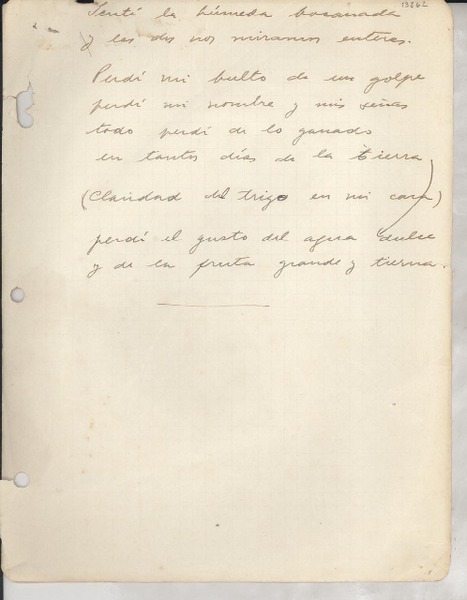 13262
Sentí la húmeda bocanada
y las dos nos miramos enteras.
Perdí mi bulto de un golpe
perdí mi nombre y mis señas
todo perdí de lo ganado
en tantos días de la tierra
(Claridad del trigo en mi cara)
perdí el gusto del agua dulce
y de la fruta grande y tierna.